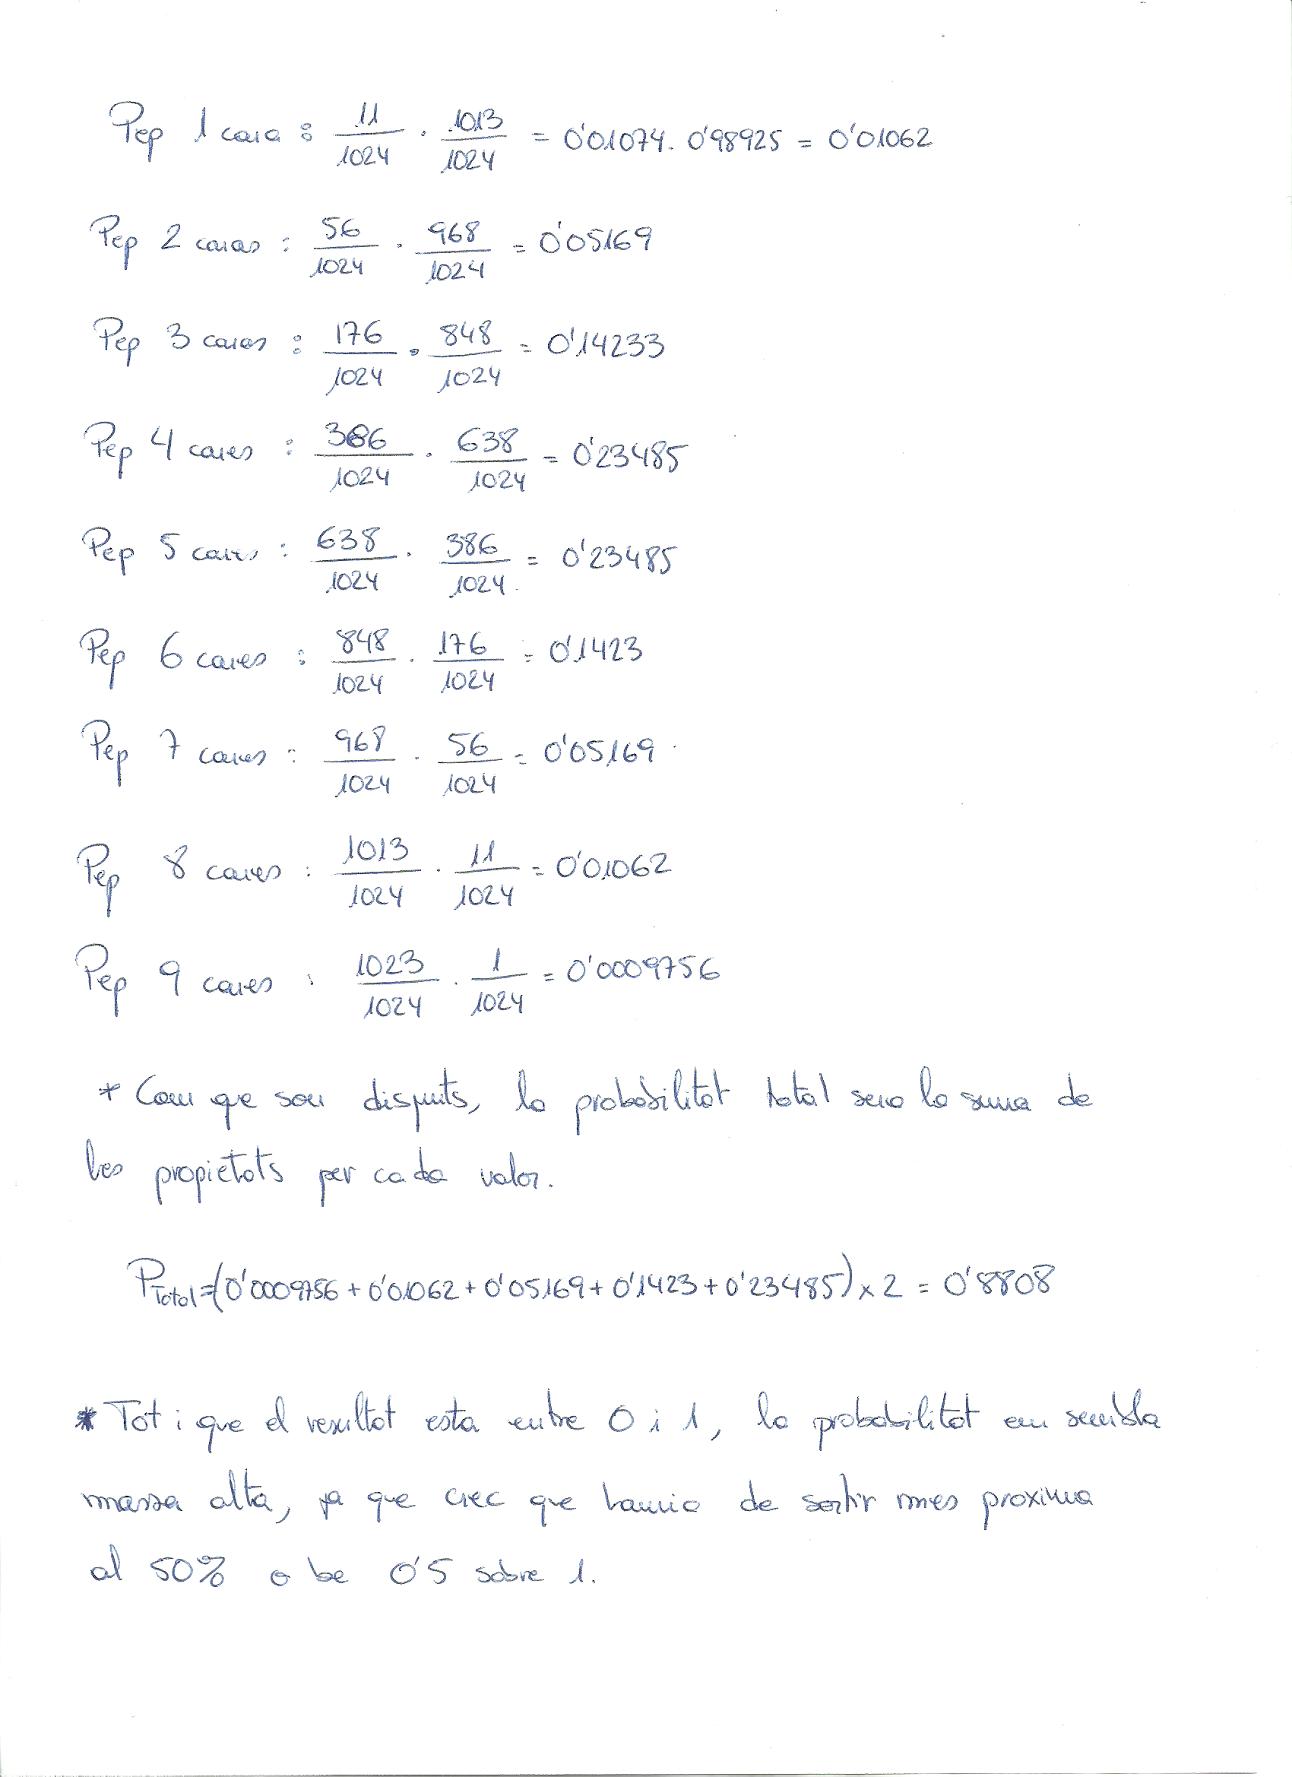 Pep 1 cara : 11/1024 · 1013/1024 = 0'01074 · 0'98925 = 0'01062
Pep 2 caras : 56/1024 · 968/1024 = 0'05169
Pep 3 caras : 176/1024 · 848/1024 = 0'14233
Pep 4 cares : 386/1024 · 638/1024 = 0'23485
Pep 5 cares : 638/1024 · 386/1024 = 0'23485
Pep 6 cares : 848/1024 · 176/1024 = 0'1423
Pep 7 cares : 968/1024 · 56/1024 = 0'05169
Pep 8 cares : 1013/1024 · 11/1024 = 0'01062
Pep 9 cares : 1023/1024 · 1/1024 = 0'0009756
* Com que son disjunts, la probabilitat total sera la suma de
les propietats per cada valor.
PTotal = (0'0009756 + 0'01062 + 0'05169 + 0'1423 + 0'23485) x 2 = 0'8808
* Tot i que el resultat esta entre 0 i 1, la probabilitat em sembla
massa alta, ja que crec que hauria de sortir mes proxima
al 50% o be 0'5 sobre 1.